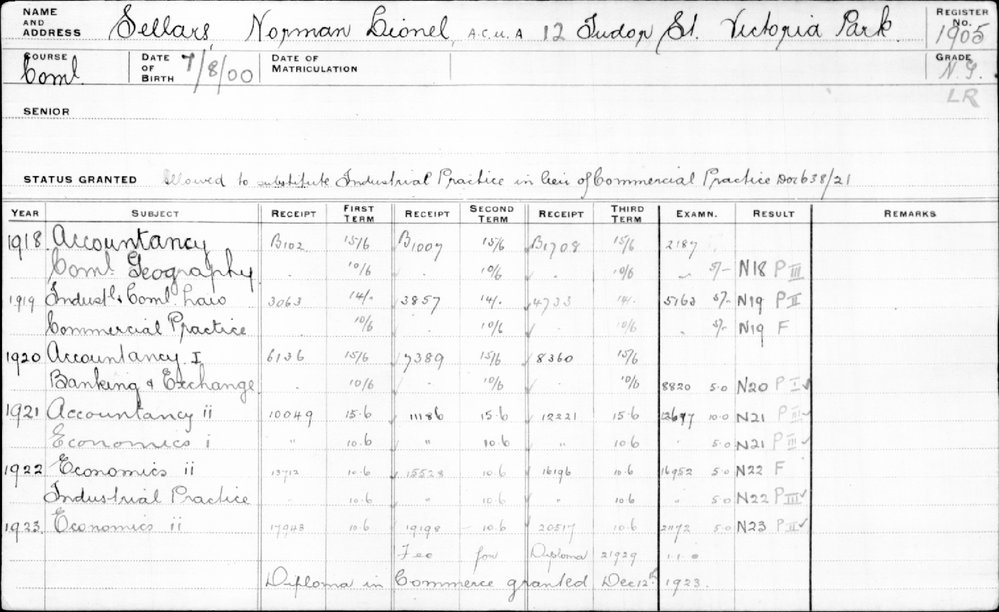 NAME AND ADDRESS Sellars, Norman Lionel, A.C.U.A 12 Tudor St. Victoria Park. REGISTER No. 1905
COURSE Coml. DATE OF BIRTH 7/8/00 DATE OF MATRICULATION GRADE N.G.
LR
SENIOR
STATUS GRANTED Allowed to substitute Industrial Practice in lieu of Commercial Practice Doc 638/21
YEAR SUBJECT RECEIPT FIRST TERM RECEIPT SECOND TERM RECEIPT THIRD TERM EXAMN. RESULT REMARKS
1918 Accountancy B102 15/6 B1007 15/6 B1708 15/6 2187
Coml. Geography " 10/6 " 10/6 " 10/6 " 5/- N18 P III
1919 Industl & Coml. Law 3063 14/- 3857 14/- 4733 14/- 5163 5/- N19 P II
Commercial Practice " 10/6 " 10/6 " 10/6 " 5/- N19 F
1920 Accountancy I 6136 15/6 7389 15/6 8360 15/6
Banking & Exchange " 10/6 " 10/6 " 10/6 8820 5.0 N20 P I ✓
1921 Accountancy ii 10049 15.6 11186 15.6 12221 15.6 12697 10.0 N21 P III ✓
Economics i " 10.6 " 10.6 " 10.6 " 5.0 N21 P III ✓
1922 Economics ii 13712 10.6 15528 10.6 16196 10.6 16952 5.0 N22 F
Industrial Practice " 10.6 " 10.6 " 10.6 " 5.0 N22 P III ✓
1923 Economics ii 17948 10.6 19198 10.6 20517 10.6 21172 5.0 N23 P II ✓
Fee for Diploma 21929 1.1.0
Diploma in Commerce granted Dec 12th 1923.